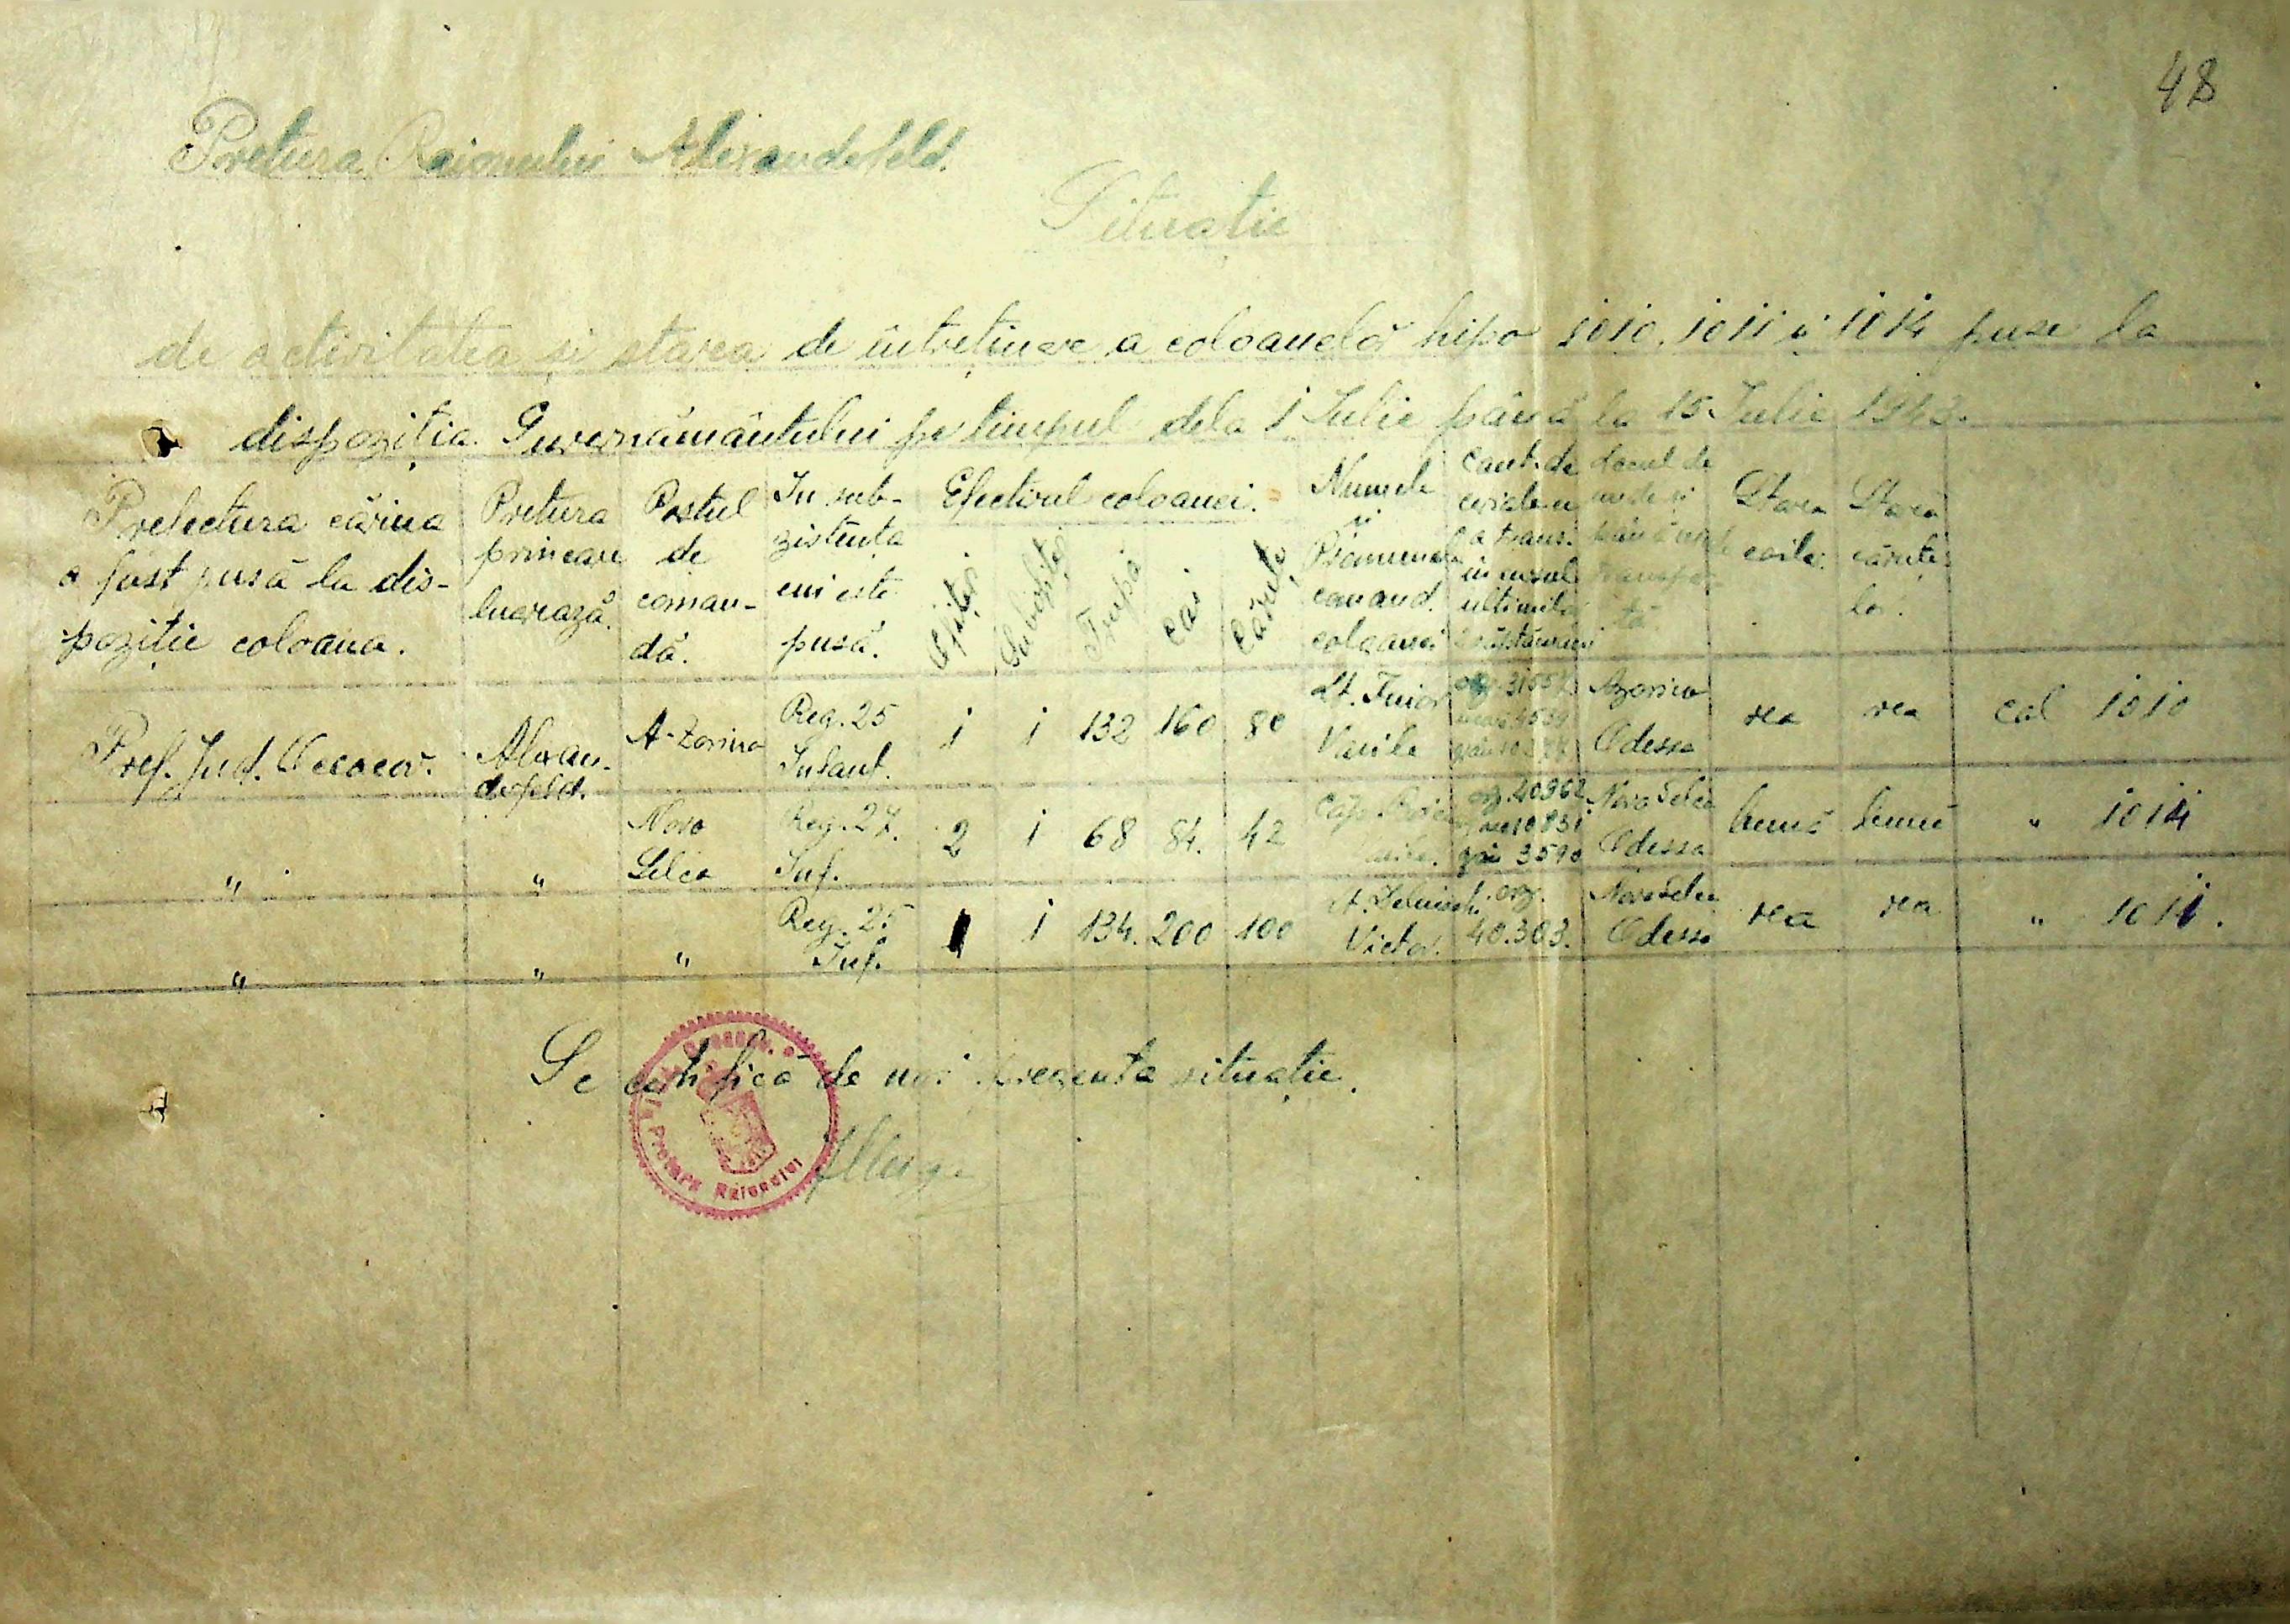 48
Pretura Raionului Alexanderfeld.
Situație
de activitatea și starea de întreținere a coloanelor hipo 1010, 1011 și 1014 puse la
dispoziția Guvernământului pe timpul dela 1 Iulie până la 15 Iulie 1943.
Prefectura cărina a fost pusă la dispoziție coloana. Pretura princare lucrază. Postul de comandă. In subzistența cui este pusă. Efectivul coloanei. Ofițeri Subofițeri Trupă Cai Căruțe Numele și Pronumele comand. coloanei Cant. de cereale ce a trans. in cursul ultimilor Locul de unde și până unde transportă Starea cailor. Starea căruțelor.
Pref. Jud. Oceacov. Alexanderfeld. A-Zarina Reg. 25 Infant. 1 1 132 160 80 Lt. Vasile Azarina Odessa rea rea col 1010
" " Novo Selca Reg. 27. Inf. 2 1 68 84. 42 Căp. orz. 40962 10831 grâu 3590 Nova Selca Odessa bună bună " 1014
" " " Reg. 25 Inf. 1 1 134. 200 100 Lt. Victor. orz. 40.303. Nova Selca Odessa rea rea " 1011.
Se certifică de noi prezenta situație.
Pretura Raionului